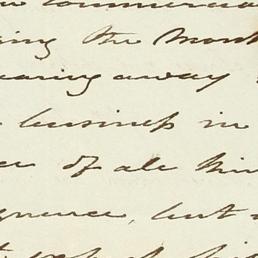 commercia
ing the Mont
earing away
business in
of all kin
quence, but